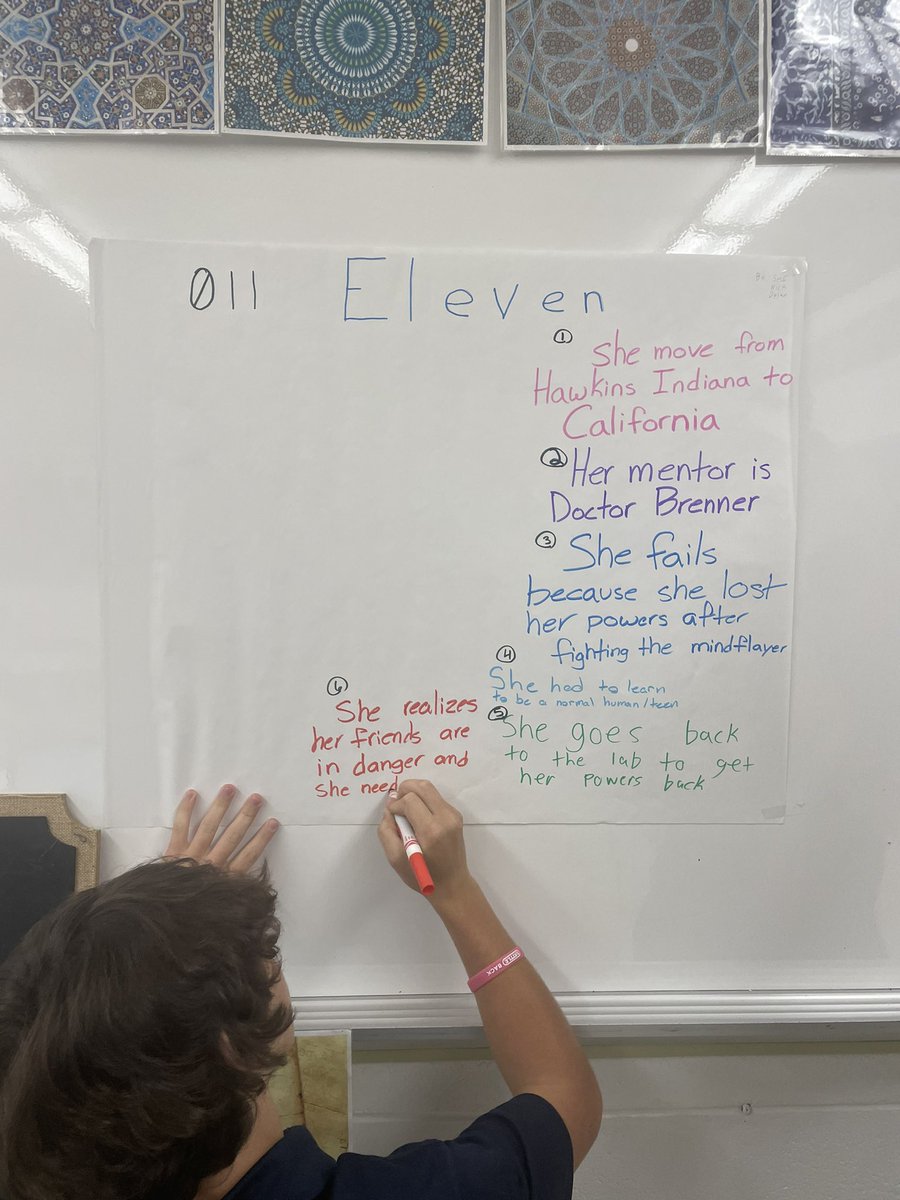 011 Eleven
①
She move from
Hawkins Indiana to
California
② Her mentor is
Doctor Brenner
③ She fails
because she lost
her powers after
fighting the mindflayer
④
She had to learn
to be a normal human/teen
⑤ She goes back
to the lab to get
her powers back
⑥
She realizes
her friends are
in danger and
she need
BACK